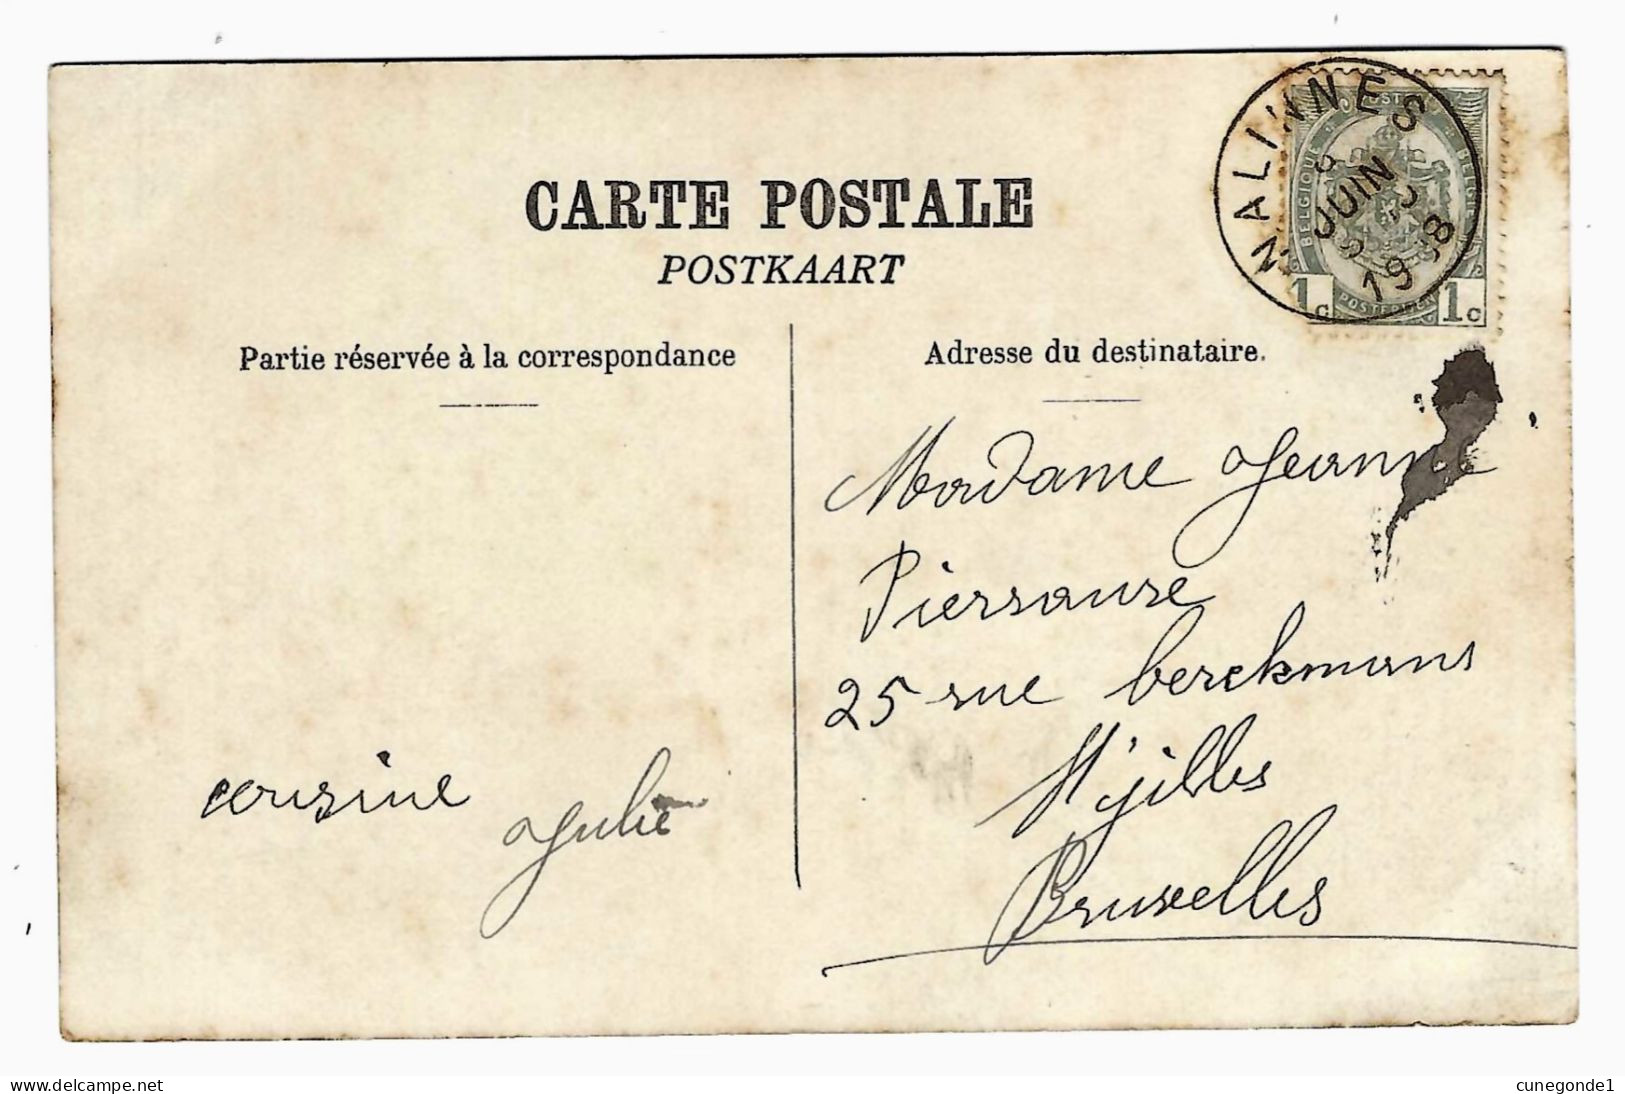 CARTE POSTALE
POSTKAART
Partie réservée à la correspondance
Adresse du destinataire.
MALINNES
8
JUIN
19 8
BELGIQUE
BELGIE
1c
1c
Madame Jeanne
Piersause
25 rue berckmans
St gilles
Bruxelles
cousine
Julie
www.delcampe.net
cunegonde1